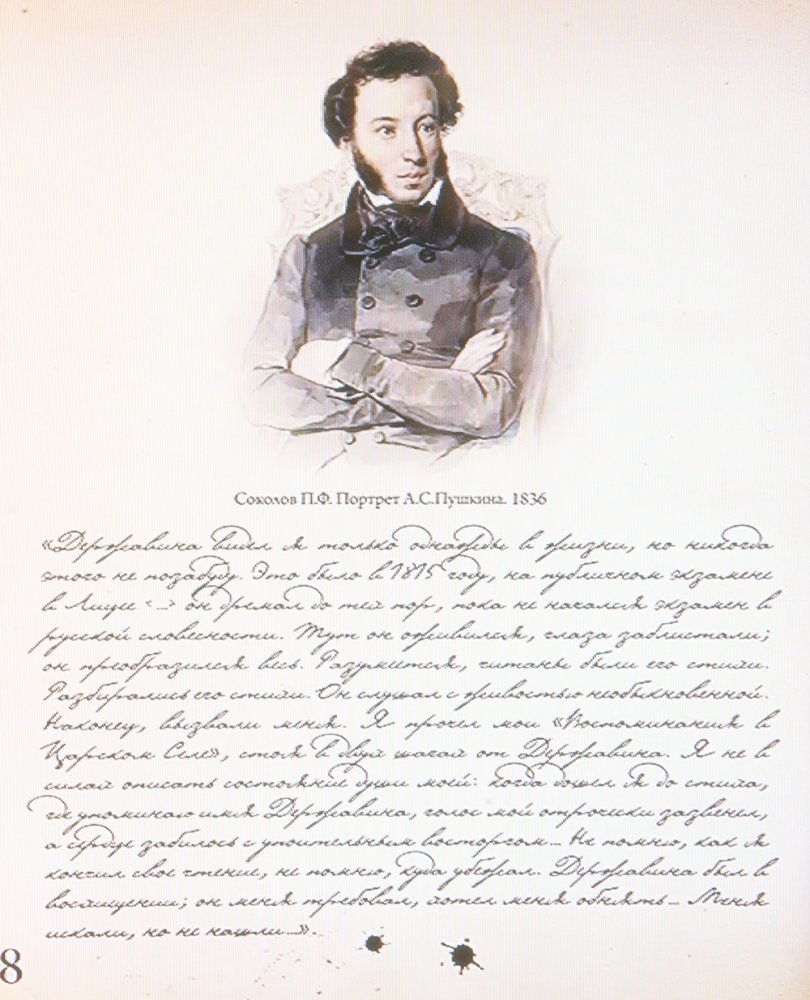 Соколов П.Ф. Портрет А.С.Пушкина. 1836
«Державина видел я только однажды в жизни, но никогда
этого не позабуду. Это было в 1815 году, на публичном экзамене
в Лицее <...> он дремал до тех пор, пока не начался экзамен в
русской словесности. Тут он оживился, глаза заблистали;
он преобразился весь. Разумеется, читаны были его стихи.
Разбирались его стихи. Он слушал с живостью необыкновенной.
Наконец, вызвали меня. Я прочел мои «Воспоминания в
Царском Селе», стоя в двух шагах от Державина. Я не в
силах описать состояние души моей: когда дошел я до стиха,
где упоминаю имя Державина, голос мой отрочески зазвенел,
а сердце забилось с упоительным восторгом... Не помню, как я
кончил свое чтение, не помню, куда убежал. Державина был в
восхищении; он меня требовал, хотел меня обнять... Меня
искали, но не нашли...».
8